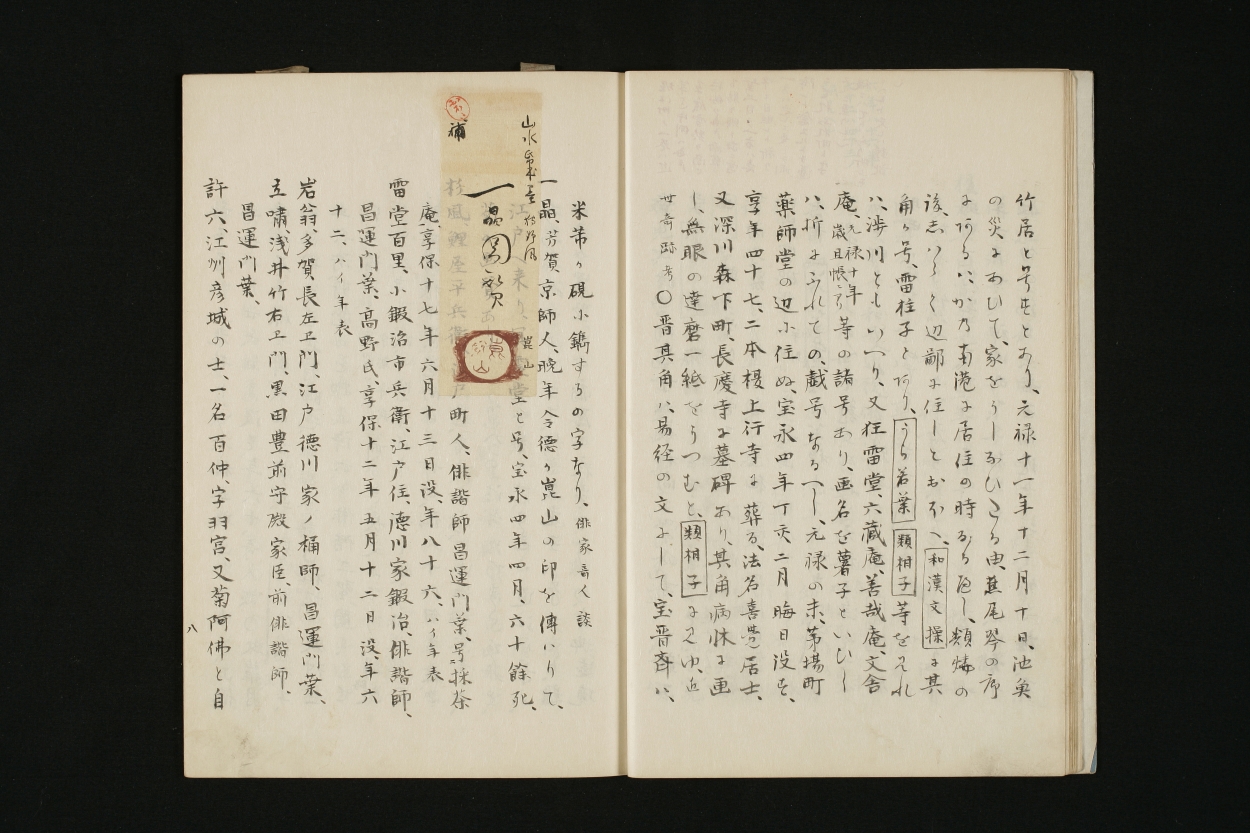 竹居と号せとあり、元禄十一年十二月十日、池魚
の災にあひて、家をうしなひたる由、焦尾琴の序
にあるは、かの南港に居住の時なるべし、類焼の
後、しはらく辺鄙に住しとおほへ、和漢文操に其
角か号、雷柱子とあり、うら若葉 類柑子等を見れ
ハ、渉川ともいへり、又狂雷堂、六蔵庵、善哉庵、文舎
庵、元禄十年歳旦帳ニ云等の諸号あり、画名を薯子といひし
ハ、折にふれての戯号なるへし、元禄の末、茅場町
薬師堂の辺に住ぬ、宝永四年丁亥二月晦日没す、
享年四十七、二本榎上行寺に葬る、法名喜覚居士、
又深川森下町、長慶寺に墓碑あり、其角病牀に画
し、無眼の達磨一紙をうつむと、類柑子に見ゆ、近
世奇跡考〇晋其角ハ、易経の文にして、宝晋斉ハ、
米芾か硯に鐫するの字なり、俳家奇人談
一晶、芳賀、京師人、晩年令徳か崑山の印を傳ハりて、
堂と号、宝永四年四月、六十餘死、
町人、俳諧師昌運門葉、号採荼
庵、享保十七年六月十三日没、年八十六、ハイ年表
雷堂百里、小鍛冶市兵衛、江戸住、徳川家鍛冶、俳諧師、
昌運門葉、高野氏、享保十二年五月十二日没、年六
十二、ハイ年表
岩翁、多賀、長左ヱ門、江戸徳川家ノ桶師、昌運門葉、
立嘯、浅井竹右ヱ門、黒田豊前守殿家臣、前俳諧師、
昌運門葉、
許六、江州彦城の士、一名百仲、字羽官、又菊阿佛と自
八
補
山水
一晶
崑山
崑山